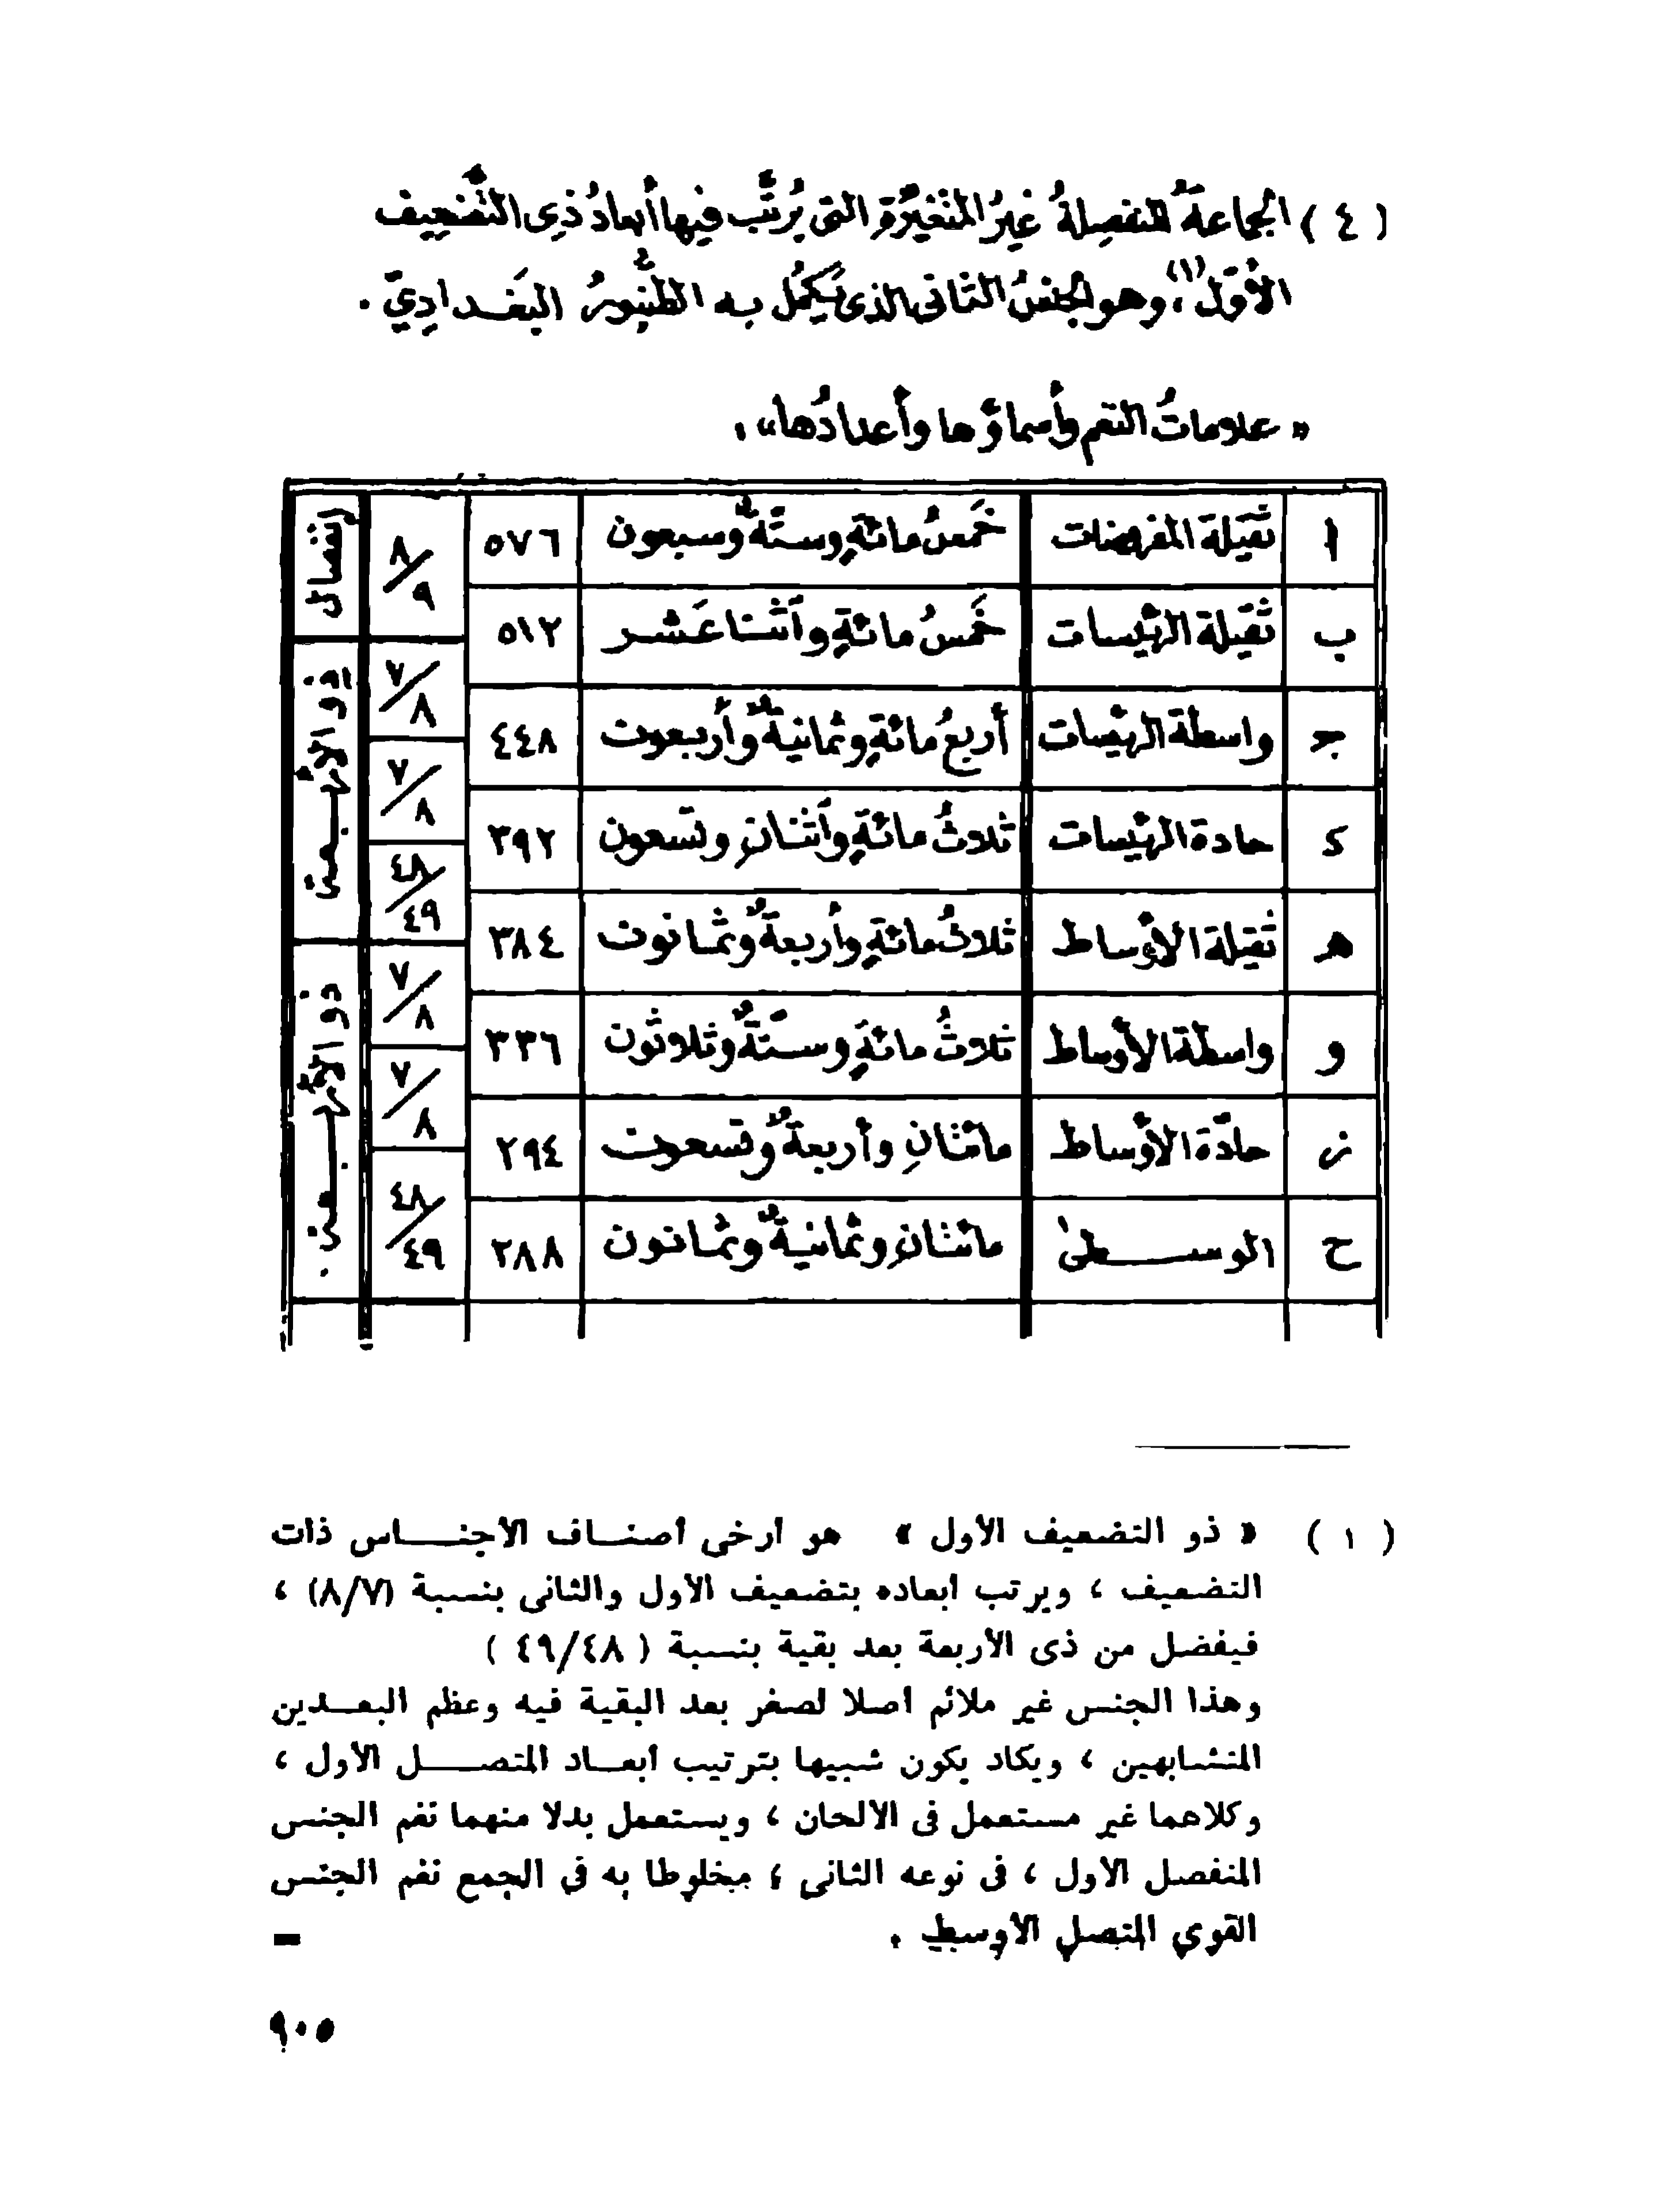 ( ٤ ) الجماعةُ المنفصِلةُ غيرُ المتغيِّرةِ التى يُرتَّب فيها أبعادُ ذِى التَّضعِيف
الأوّل(١)، وهو الجنسُ الثانى الذى يَكمُل بـه الطُّنبورُ البَغـدادِيّ .
« علاماتُ النغم وأسماؤها وأعدادُها» .
ا ثقيلة المفروضات خَمسُ مائةٍ وستّةٌ وسبعون ٥٧٦ ٨/٩ انفصال
ب ثقيلة الرئيسات خَمسُ مائةٍ واثنا عَشر ٥١٢ ٧/٨ ذو الأربـعة
ج واسطة الرئيسات أربعُ مائةٍ وثمانيةٌ وأربعون ٤٤٨ ٧/٨
د حادة الرئيسات ثلاثُ مائةٍ وأثنانِ وتسعون ٣٩٢ ٤٨/٤٩
هـ ثقيلة الأوساط ثلاثُ مائةٍ وأربعةٌ وثمانون ٣٨٤ ٧/٨ ذو الأربـعة
و واسطة الأوساط ثلاثُ مائةٍ وستّةٌ وثلاثون ٣٣٦ ٧/٨
ز حادّة الأوساط مائتانِ وأربعةٌ وتسعون ٢٩٤ ٤٨/٤٩
ح الوسـطىٰ مائتانِ وثمانيةٌ وثمانون ٢٨٨
( ١ ) « ذو التضعيف الأول » هو أرخى أصنـاف الأجنـاس ذات
التضعيف ، ويرتب أبعاده بتضعيف الأول والثانى بنسبة (٨/٧) ،
فيفضل من ذى الأربعة بعد بقية بنسبة ( ٤٩/٤٨ )
وهذا الجنس غير ملائم أصلا لصغر بعد البقية فيه وعظم البعـدين
المتشابهين ، ويكاد يكون شبيها بترتيب أبعـاد المتصـل الأول ،
وكلاهما غير مستعمل فى الألحان ، ويستعمل بدلا منهما نغم الجنس
المنفصل الأول ، فى نوعه الثانى ؛ مخلوطا به فى الجمع نغم الجنس
القوى المتصل الأوسط .
٩٠٥